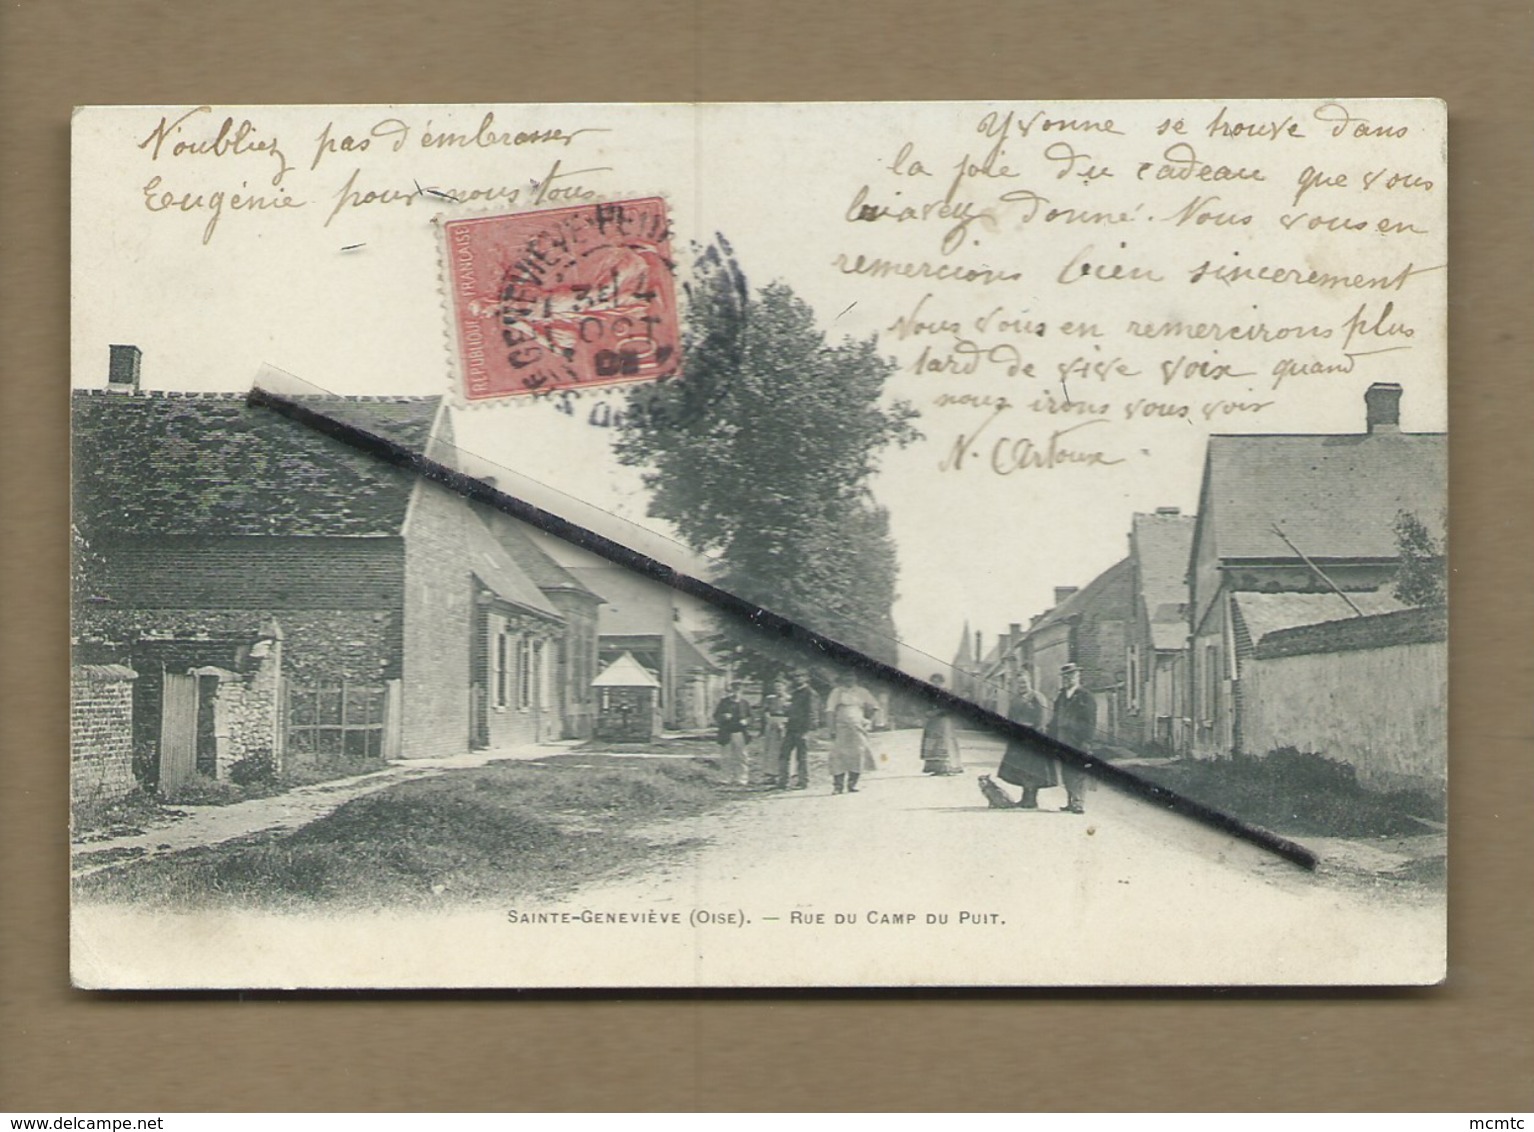 N'oubliez pas d'embrasser
Eugénie pour nous tous
Yvonne se trouve dans
la joie du cadeau que vous
lui avez donné. Nous vous en
remercions bien sincerement
Nous vous en remercirons plus
tard de vive voix quand
nous irons vous voir
N. Cartoux
REPUBLIQUE FRANÇAISE
STE GENEVIEVE
OCT
OISE
SAINTE-GENEVIÈVE (OISE). — RUE DU CAMP DU PUIT.
www.delcampe.net
mcmtc